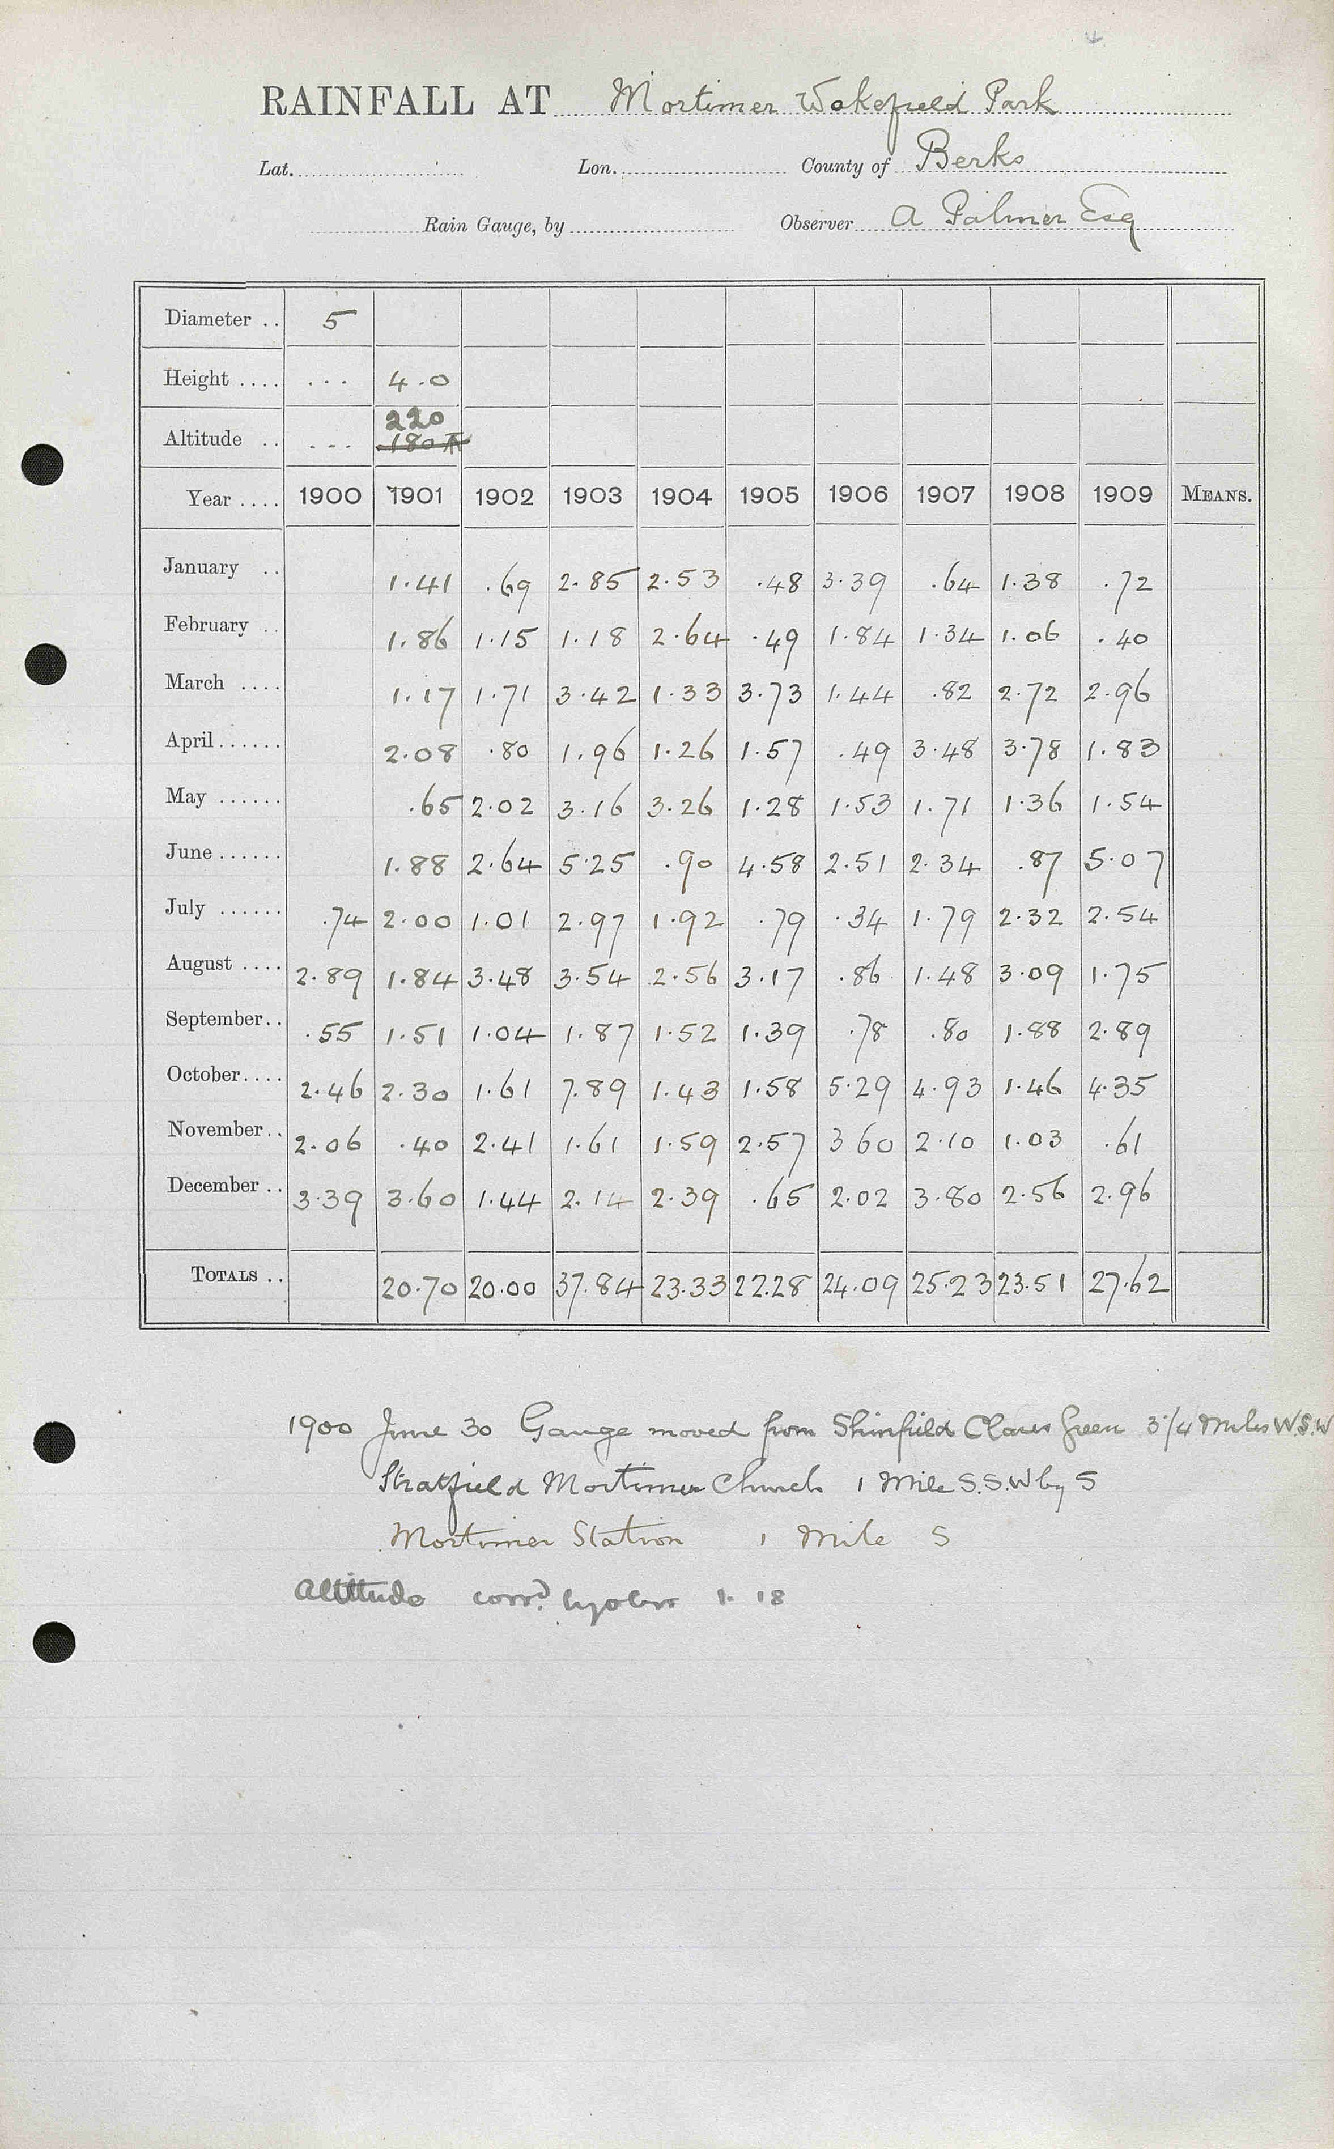 RAINFALL AT Mortimer Wokefield Park
Lat. Lon. County of Berks
Rain Gauge, by Observer A Palmer Esq
Diameter .. 5
Height .... ... 4.0
220
Altitude .. ... 180 ft
Year .... 1900 1901 1902 1903 1904 1905 1906 1907 1908 1909 MEANS.
January .. 1.41 .69 2.85 2.53 .48 3.39 .64 1.38 .72
February .. 1.86 1.15 1.18 2.64 .49 1.84 1.34 1.06 .40
March .... 1.17 1.71 3.42 1.33 3.73 1.44 .82 2.72 2.96
April...... 2.08 .80 1.96 1.26 1.57 .49 3.48 3.78 1.83
May ...... .65 2.02 3.16 3.26 1.28 1.53 1.71 1.36 1.54
June...... 1.88 2.64 5.25 .90 4.58 2.51 2.34 .87 5.07
July ...... .74 2.00 1.01 2.97 1.92 .79 .34 1.79 2.32 2.54
August .... 2.89 1.84 3.48 3.54 2.56 3.17 .86 1.48 3.09 1.75
September.. .55 1.51 1.04 1.87 1.52 1.39 .78 .80 1.88 2.89
October.... 2.46 2.30 1.61 7.89 1.43 1.58 5.29 4.93 1.46 4.35
November.. 2.06 .40 2.41 1.61 1.59 2.57 3 60 2.10 1.03 .61
December .. 3.39 3.60 1.44 2.14 2.39 .65 2.02 3.80 2.56 2.96
TOTALS .. 20.70 20.00 37.84 23.33 22.28 24.09 25.23 23.51 27.62
1900 June 30 Gauge moved from Shinfield Clares Green 3 1/4 Miles W.S.W
Stratfield Mortimer Church 1 Mile S.S.W by S
Mortimer Station 1 Mile S
Altitude corrd. by obsr 1. 18